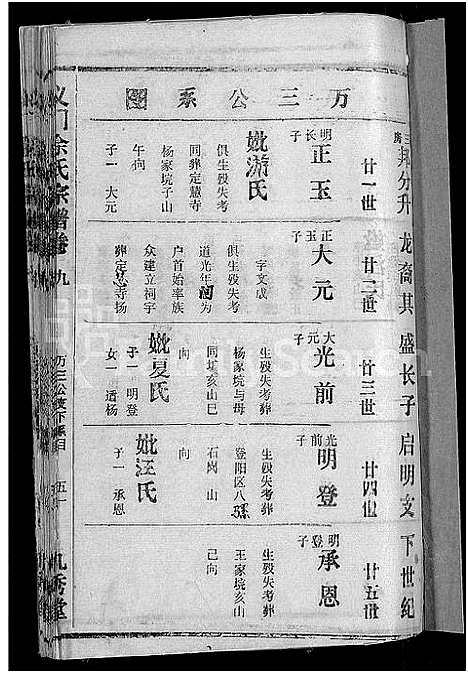 万三公系图
三房 邦分升龙裔其盛长子启明文下世纪
廿一世
廿二世
廿三世
廿四世
廿五世
明长子 正玉
妣游氏
俱生殁失考
同葬定慧寺
杨家垸子山
午向
子一 大元
正玉子 大元
字文成
俱生殁失考
道光年间为
户首始率族
众建立祠宇
葬定慧寺杨
大元子 光前
生殁失考葬
杨家垸与母
同茔亥山巳
向
妣夏氏
子一 明登
女一 适杨
光前子 明登
生殁失考葬
登阳区八孫
石岗山
向
妣汪氏
子一 承恩
明登子 承恩
生殁失考葬
王家垸亥山
己向
义门余氏宗谱卷九
万三公支下系图
五一
九秀堂